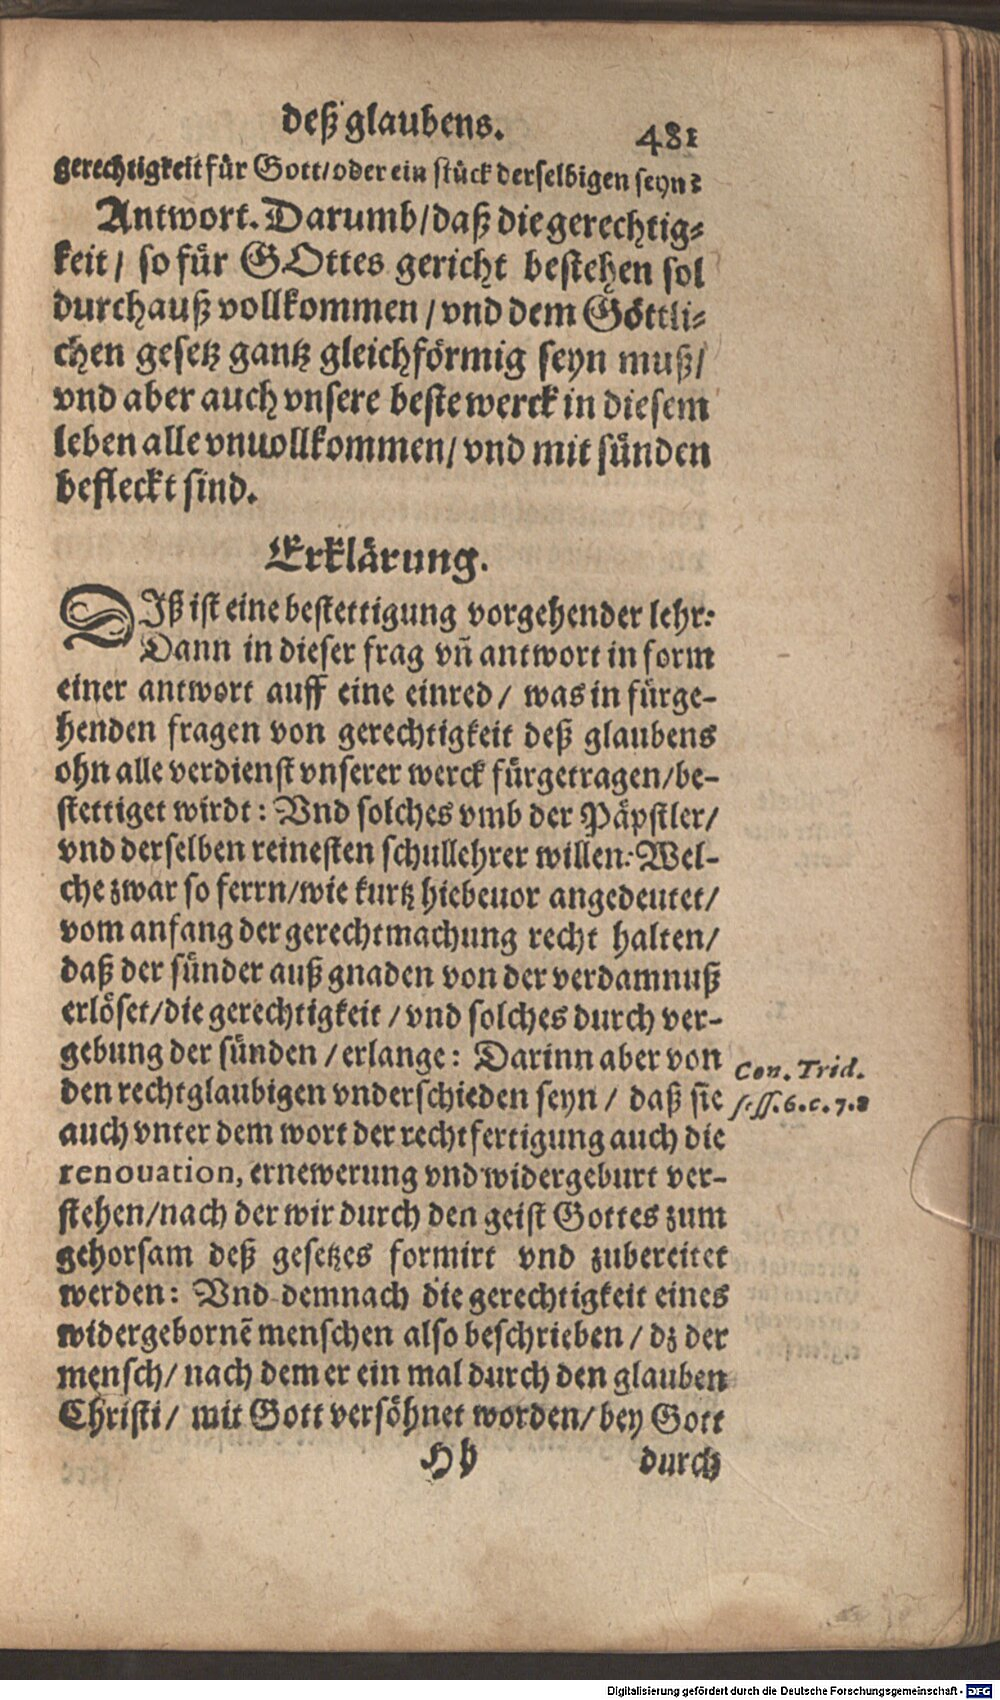 deß glaubens. 481
gerechtigkeit für Gott/oder ein stück derselbigen seyn?
Antwort. Darumb/daß die gerechtig-
keit/ so für GOttes gericht bestehen sol
durchauß vollkommen/vnd dem Göttli-
chen gesetz gantz gleichförmig seyn muß/
vnd aber auch vnsere beste werck in diesem
leben alle vnuollkommen/vnd mit sünden
befleckt sind.
Erklärung.
DIß ist eine bestettigung vorgehender lehr:
Dann in dieser frag vn̄ antwort in form
einer antwort auff eine einred/ was in fürge-
henden fragen von gerechtigkeit deß glaubens
ohn alle verdienst vnserer werck fürgetragen/be-
stettiget wirdt: Vnd solches vmb der Päpstler/
vnd derselben reinesten schullehrer willen: Wel-
che zwar so ferrn/wie kurtz hiebeuor angedeutet/
vom anfang der gerechtmachung recht halten/
daß der sünder auß gnaden von der verdamnuß
erlöset/die gerechtigkeit/vnd solches durch ver-
gebung der sünden/erlange: Darinn aber von
den rechtglaubigen vnderschieden seyn/ daß sie
auch vnter dem wort der rechtfertigung auch die
renouation, ernewerung vnd widergeburt ver-
stehen/nach der wir durch den geist Gottes zum
gehorsam deß gesetzes formirt vnd zubereitet
werden: Vnd demnach die gerechtigkeit eines
widergebornē menschen also beschrieben/dz der
mensch/nach dem er ein mal durch den glauben
Christi/ mit Gott versöhnet worden/bey Gott
Hh durch
Con. Trid.
sess. 6. c. 7. 8
Digitalisierung gefördert durch die Deutsche Forschungsgemeinschaft - DFG